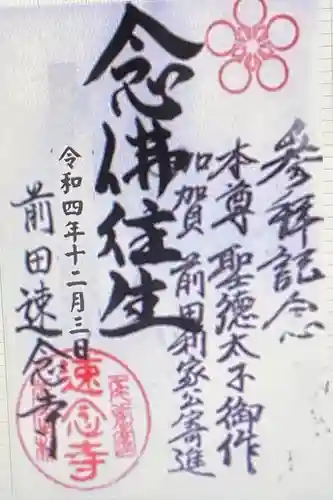 参拝記念
本尊 聖徳太子御作
加賀 前田利家公寄進
念佛往生
令和四年十二月三日
前田速念寺
速念寺